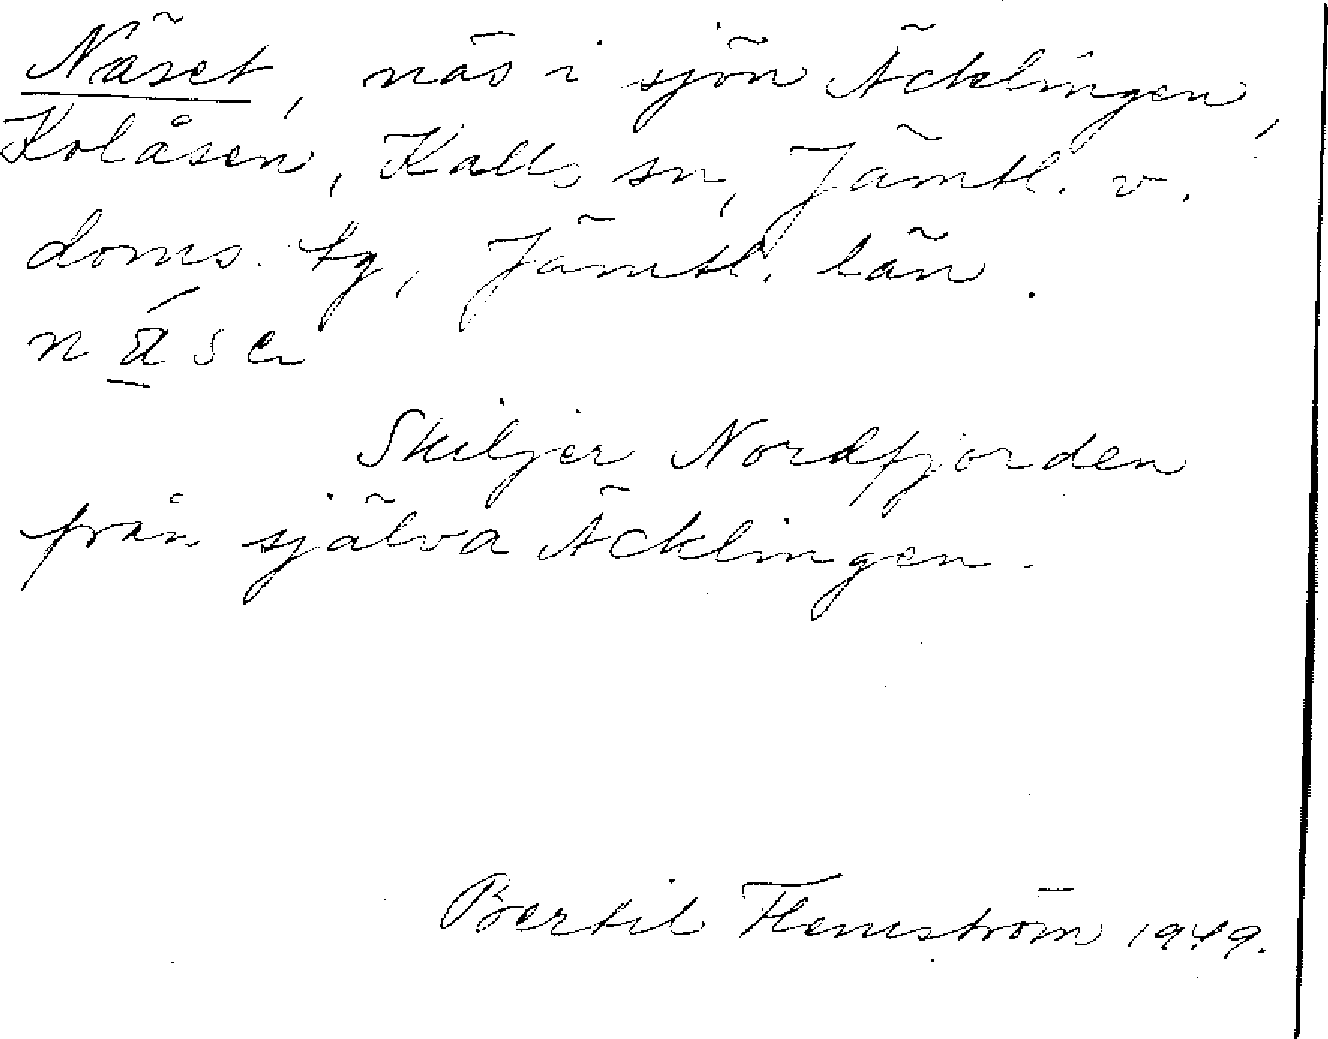 Näset, näs i sjön Äcklingen,
Kolåsen, Kalls sn, Jämtl. v.
doms. tg, Jämtl. län.
Skiljer Nordfjorden
från själva Äcklingen.
Bertil Flemström 1949.